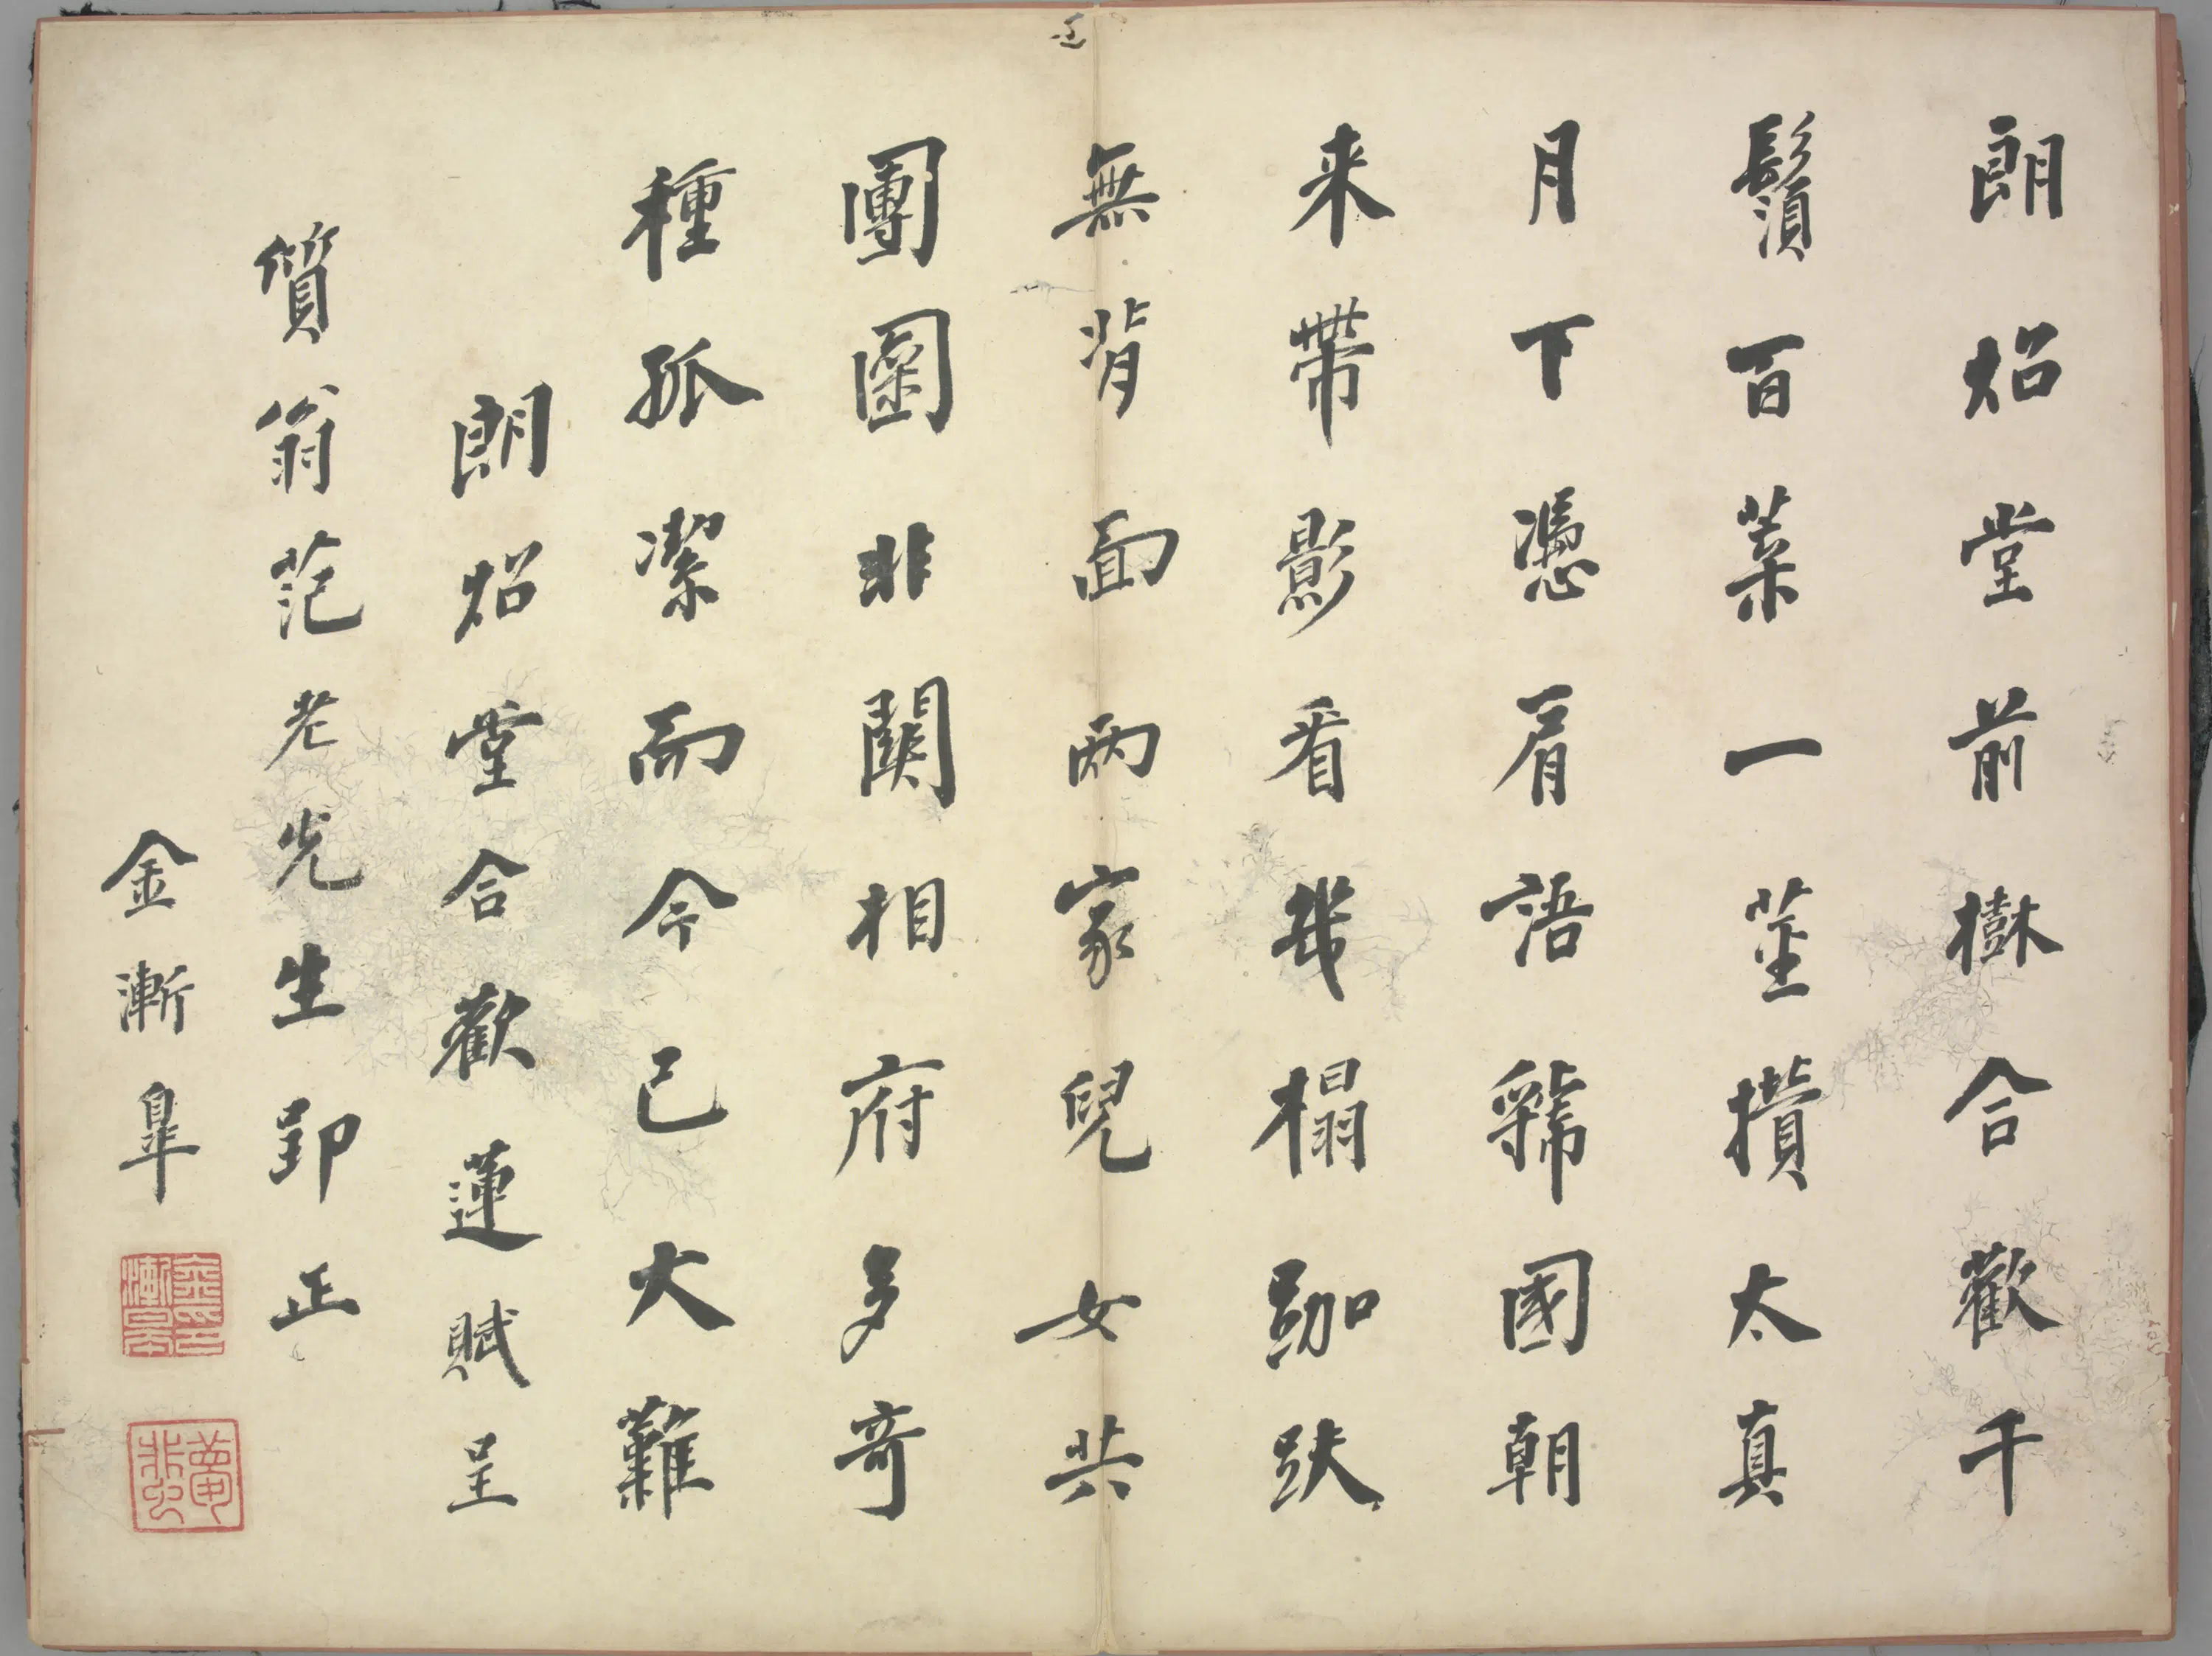 朗炤堂前樹合歡千
鬚百葉一莖攢太真
月下憑肩語虢國朝
来帶影看幾榻跏趺
無背面兩家兒女共
團圞非關相府多奇
種孤潔而今已大難
朗炤堂合歡蓮賦呈
質翁范老先生郢正
金漸皐